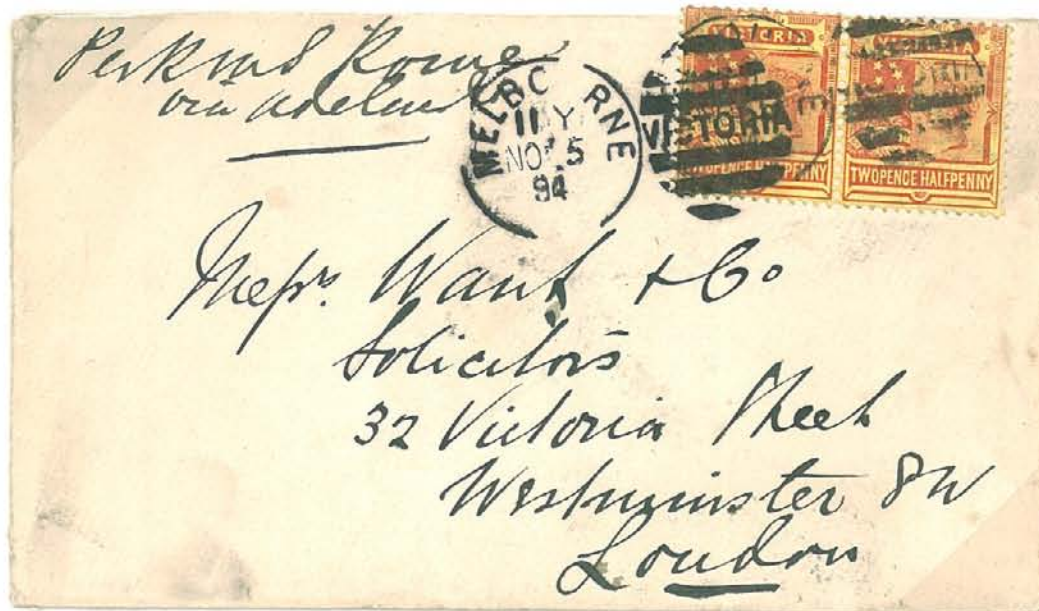 via Adelaide
MELBO RNE
11 Y
NO 15
94
VICTORIA
VICTORIA
VICTORIA
TWOPENCE HALFPENNY
TWOPENCE HALFPENNY
Messrs. Want & Co
Solicitors
32 Victoria Street
Westminster SW
London